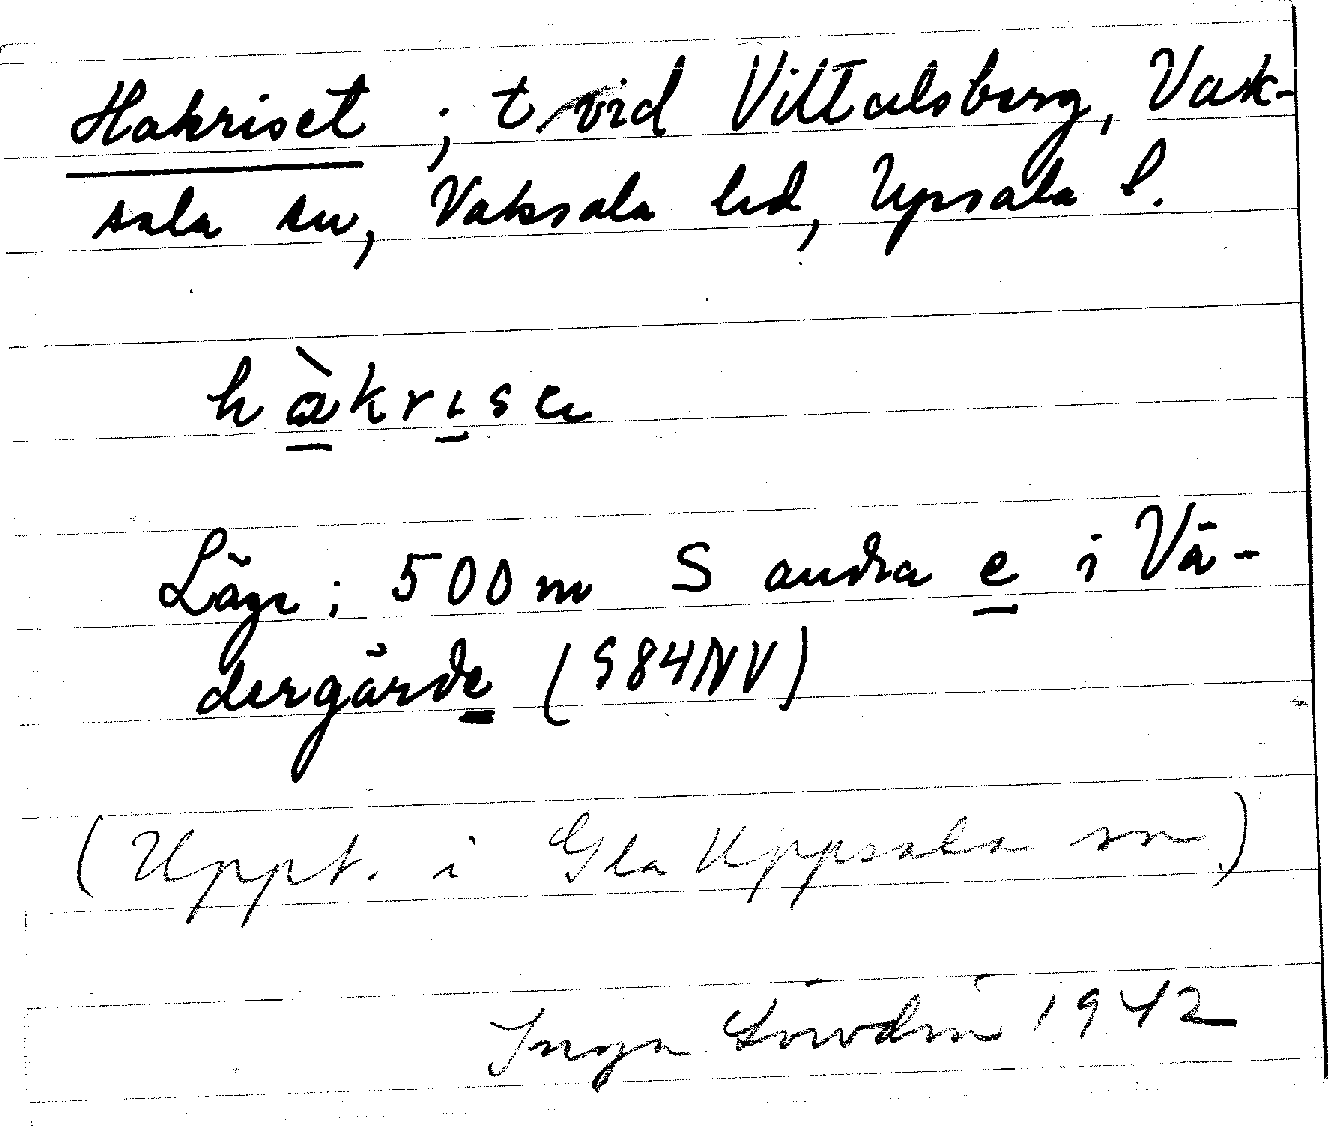 Hakriset ; t vid Vittulsberg, Vak-
sala sn, Vaksala hd, Upsala l.
hàkrisa
Läge: 500m S andra e i Vä-
dergärde (984NV)
(Uppt. i Gla Uppsala sn.)
Inga Lowdin 1942